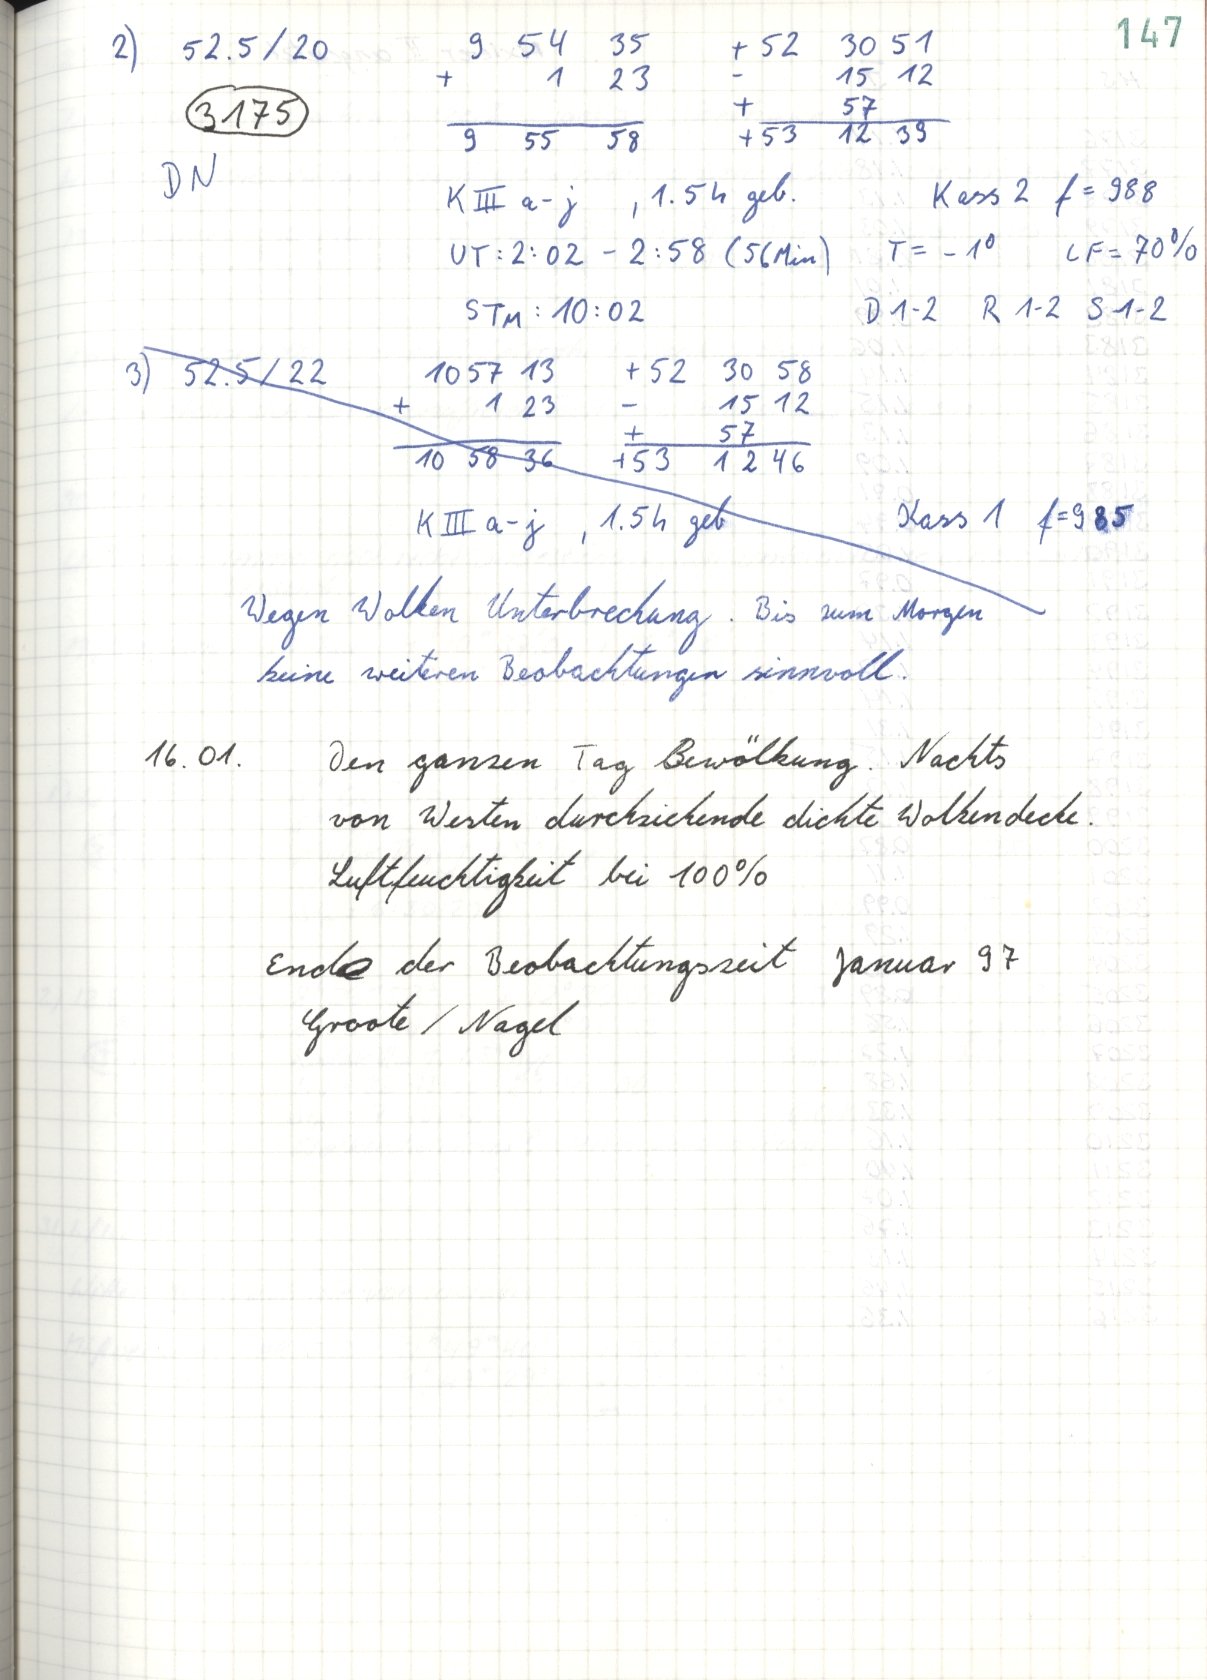 147
2) 52.5/20 9 54 35 +52 30 51
+ 1 23 - 15 12
3175 + 57
9 55 58 +53 12 39
DN
K III a-j , 1.5h geb. Kass 2 f=988
UT: 2:02 - 2:58 (56 Min) T= -1° LF= 70%
STM: 10:02 D 1-2 R 1-2 S 1-2
3) 52.5/22 10 57 13 +52 30 58
+ 1 23 - 15 12
+ 57
10 58 36 +53 12 46
K III a-j , 1.5h geb Kass 1 f=985
Wegen Wolken Unterbrechung. Bis zum Morgen
keine weiteren Beobachtungen sinnvoll.
16.01. Den ganzen Tag Bewölkung. Nachts
von Westen durchziehende dichte Wolkendecke.
Luftfeuchtigkeit bei 100%
Ende der Beobachtungszeit Januar 97
Groote / Nagel